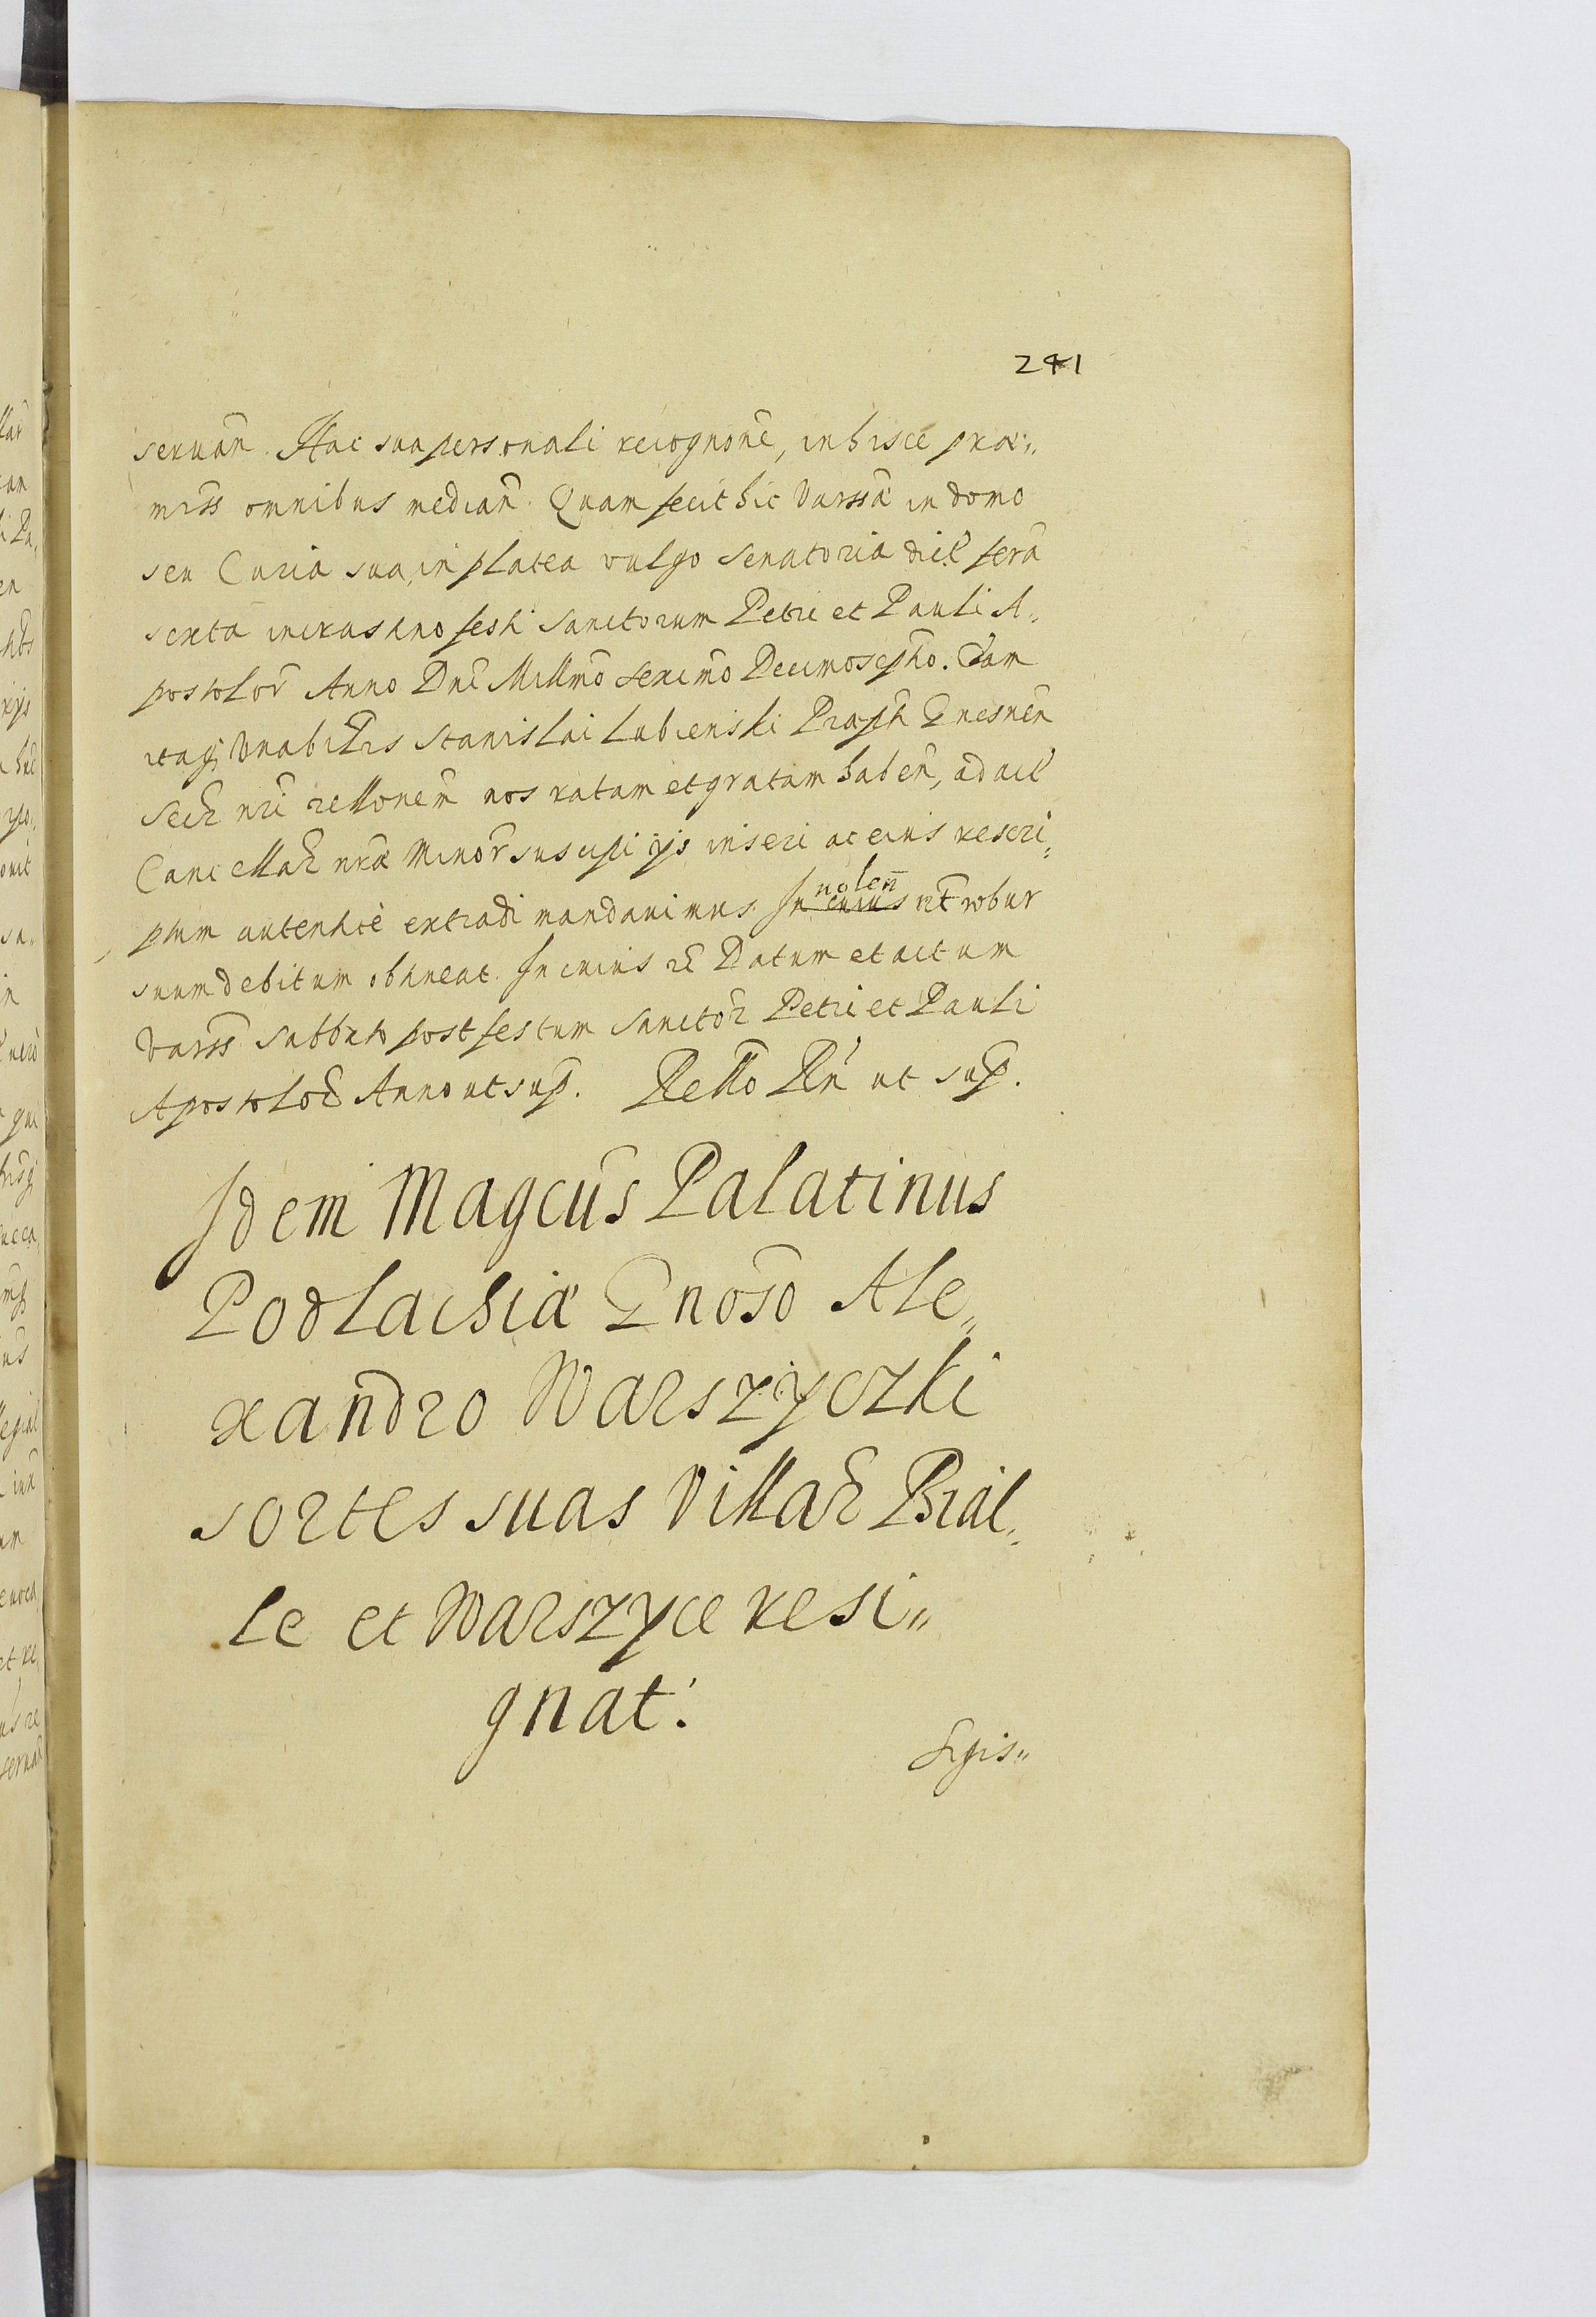 241
seruan̄. Hac sua personali recognonē, in hisce præ„
miss̄ omnibus median̄. Quam fecit hic Varssæ in domo
seu Curia sua, in platea vulgo Senatoria dict̄ feria
sexta in crastino festi Sanctorum Petri et Pauli A„
postolor̄ Anno Dnī Millmō sexcmō Decimoseptō. Quam
itaq̨ Vnabilis Stanislai Lubienski Præpti Gnesnen̄
Secr̄ nrī rellonem̄ nos ratam et gratam haben̄, ad act̄
Cancellar̄ nræ Minor̄ suscipi ijs inseri ac eius rescri„
ptum autentice extradi mandauimus. In cuius nolen̄ ut robur
suum debitum obtineat. In cuius r̄ Datum et actum
Varss̄ Sabbato post festum Sanctor̄ Petri et Pauli
Apostolor̄ Anno ut sup̄. Rello R̄n ut sup̄.
Idem Magcūs Palatinus
Podlachiæ Gnosō Ale„
xandro Warszyczki
sortes suas Villar̄ Biał„
le et Warszyce resi„
gnat.
Sigis„